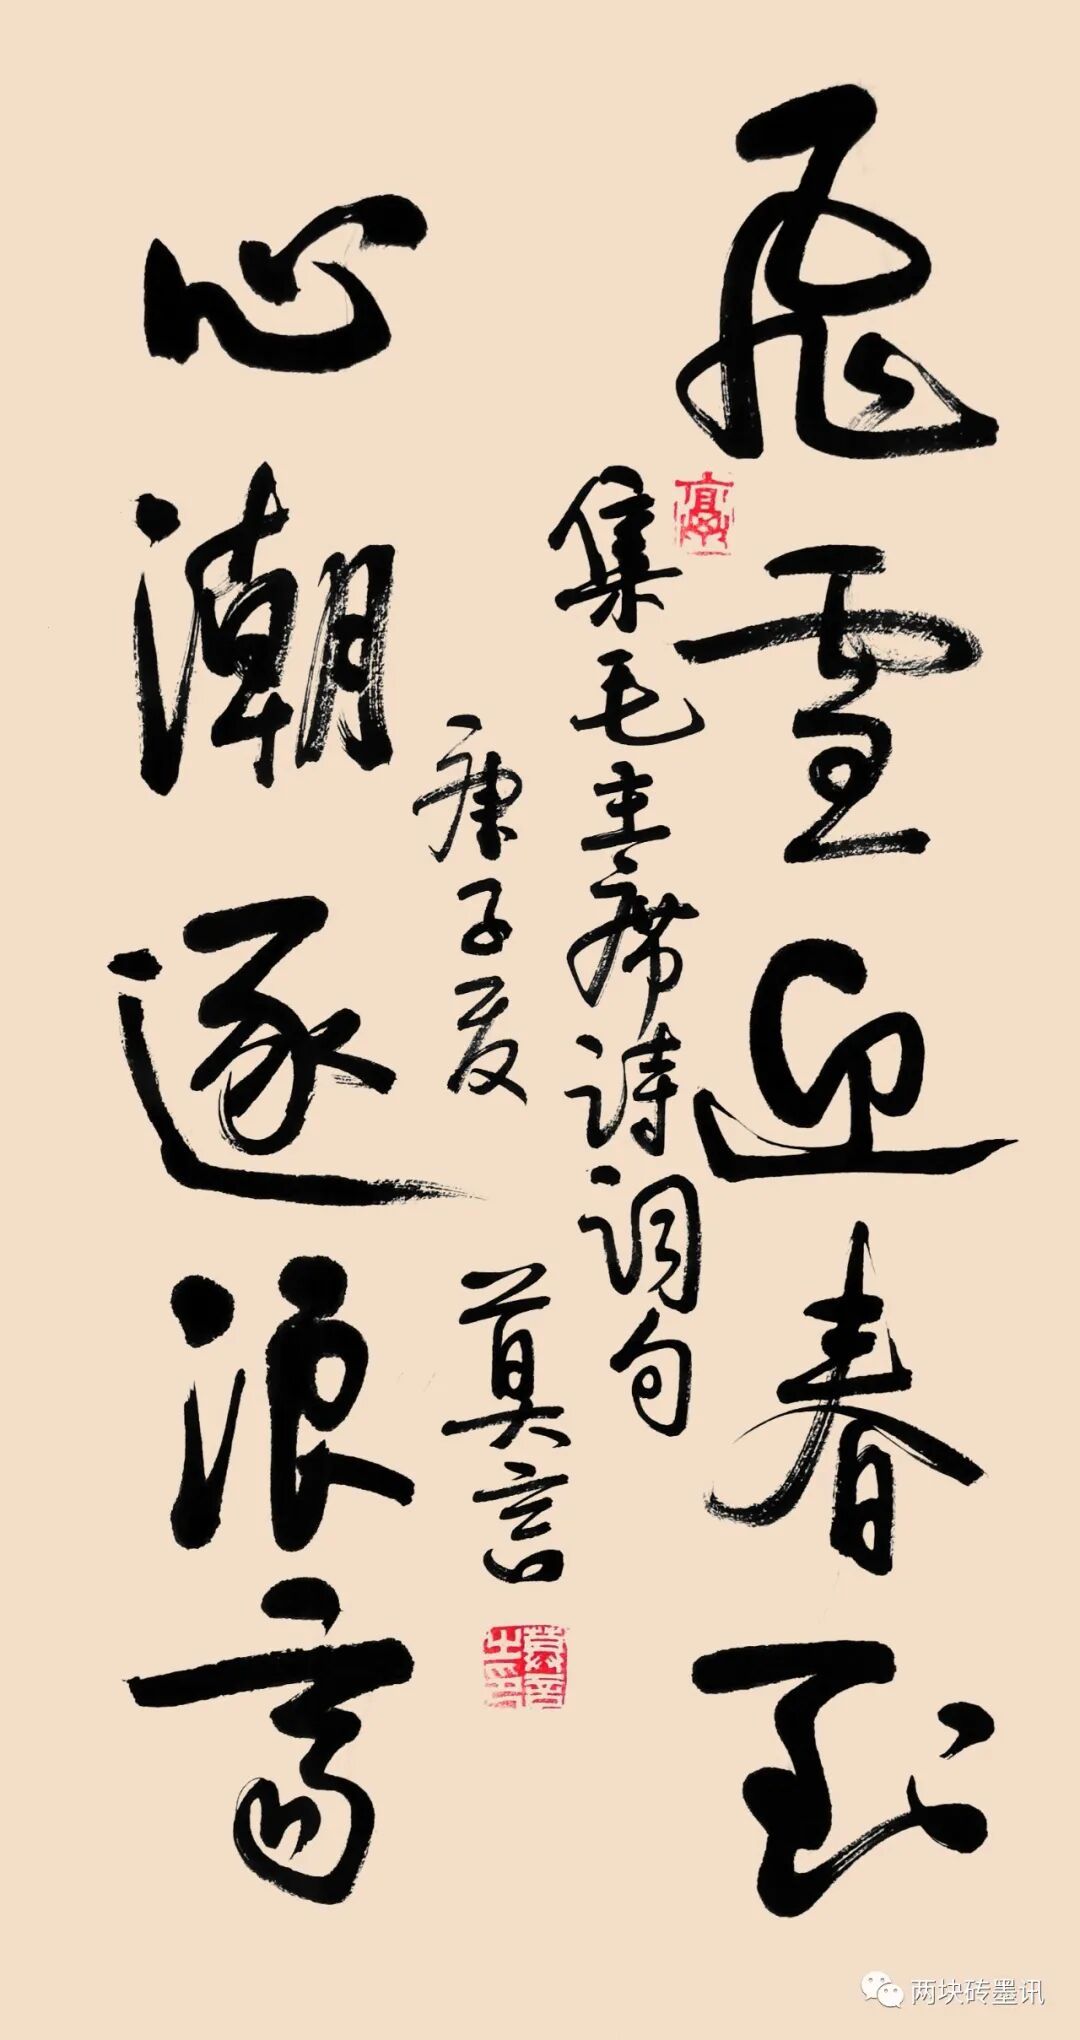 飛雪迎春到
集毛主席诗词句
庚子夏 莫言
心潮逐浪高
莫言之印
两块砖墨讯